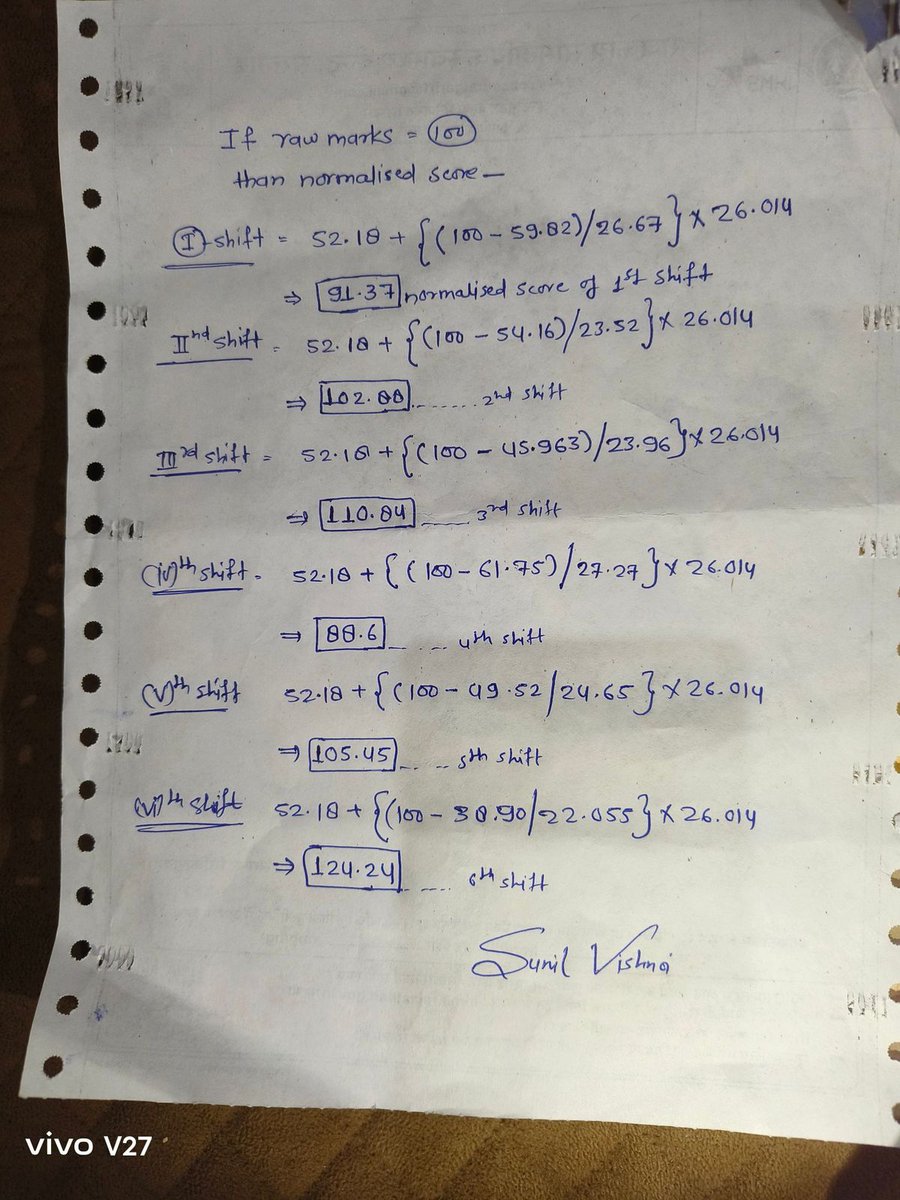 If raw marks = 100
than normalised score —
I-shift = 52.18 + {(100 - 59.82)/26.67} × 26.014
⇒ 91.37 normalised score of 1st shift
IInd shift = 52.18 + {(100 - 54.16)/23.52} × 26.014
⇒ 102.88 ........ 2nd shift
IIIrd shift = 52.18 + {(100 - 45.963)/23.96} × 26.014
⇒ 110.84 ...... 3rd shift
(iv)th shift - 52.18 + {(100 - 61.75)/27.27} × 26.014
⇒ 88.6 ...... 4th shift
(v)th shift 52.18 + {(100 - 49.52/24.65} × 26.014
⇒ 105.45 ...... 5th shift
(vi)th shift 52.18 + {(100 - 38.90/22.055} × 26.014
⇒ 124.24 ...... 6th shift
Sunil Vishnoi
vivo V27